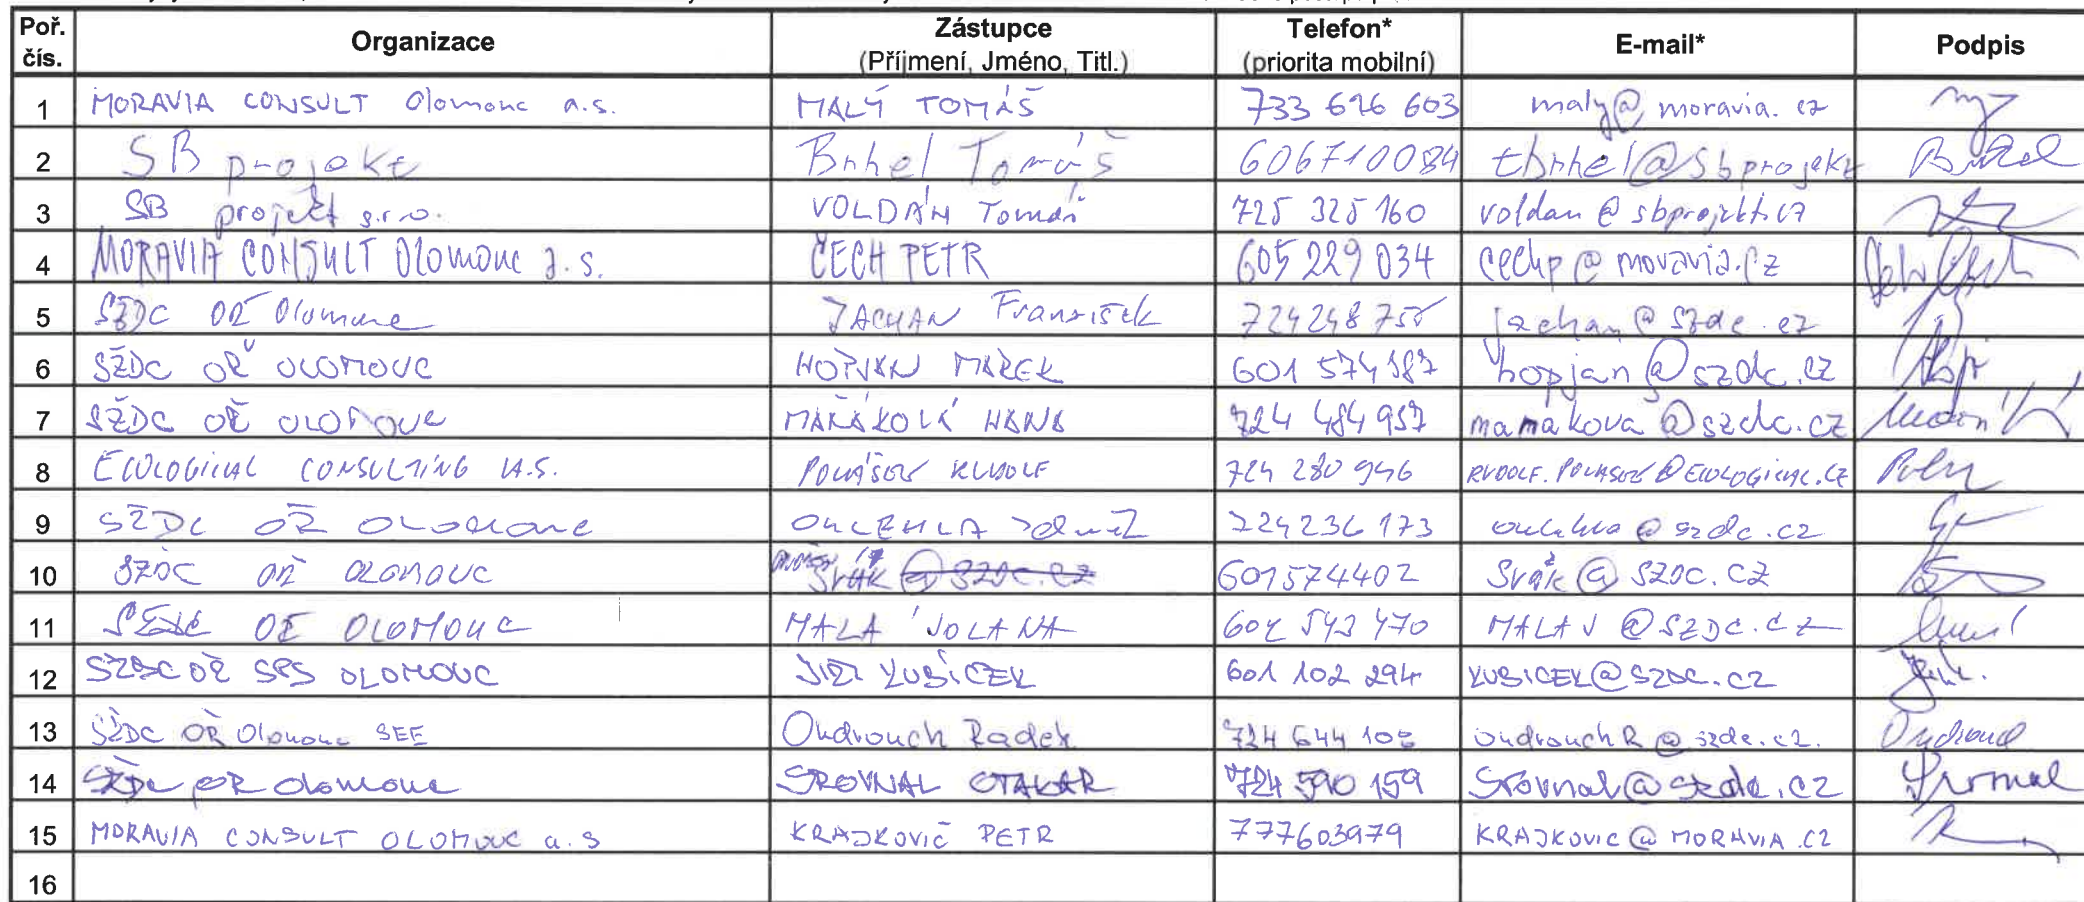 Poř. čís. Organizace Zástupce (Příjmení, Jméno, Titl.) Telefon* (priorita mobilní) E-mail* Podpis
1 MORAVIA CONSULT Olomouc a.s. MALÝ TOMÁŠ 733 696 603 maly@moravia.cz
2 SB projekt Brhel Tomáš 606710084 tbrhel@sbprojekt Brhel
3 SB projekt s.r.o. VOLDÁN Tomáš 725 325 160 voldan@sbprojekt.cz
4 MORAVIA CONSULT Olomouc a.s. ČECH PETR 605 229 034 cechp@moravia.cz
5 SŽDC OŘ Olomouc JACHAN František jachan@szdc.cz
6 SŽDC OŘ OLOMOUC HOPJAN MAREK 601 574 387 hopjan@szdc.cz
7 SŽDC OŘ OLOMOUC HANA 724 484 957 mamakova@szdc.cz
8 ECOLOGICAL CONSULTING a.s. POLÁŠEK RUDOLF 724 280 946 RUDOLF.POLASEK@ECOLOGICAL.CZ
9 SŽDC OŘ OLOMOUC 724236173 @szdc.cz
10 SŽDC OŘ OLOMOUC 601574402 Svák@SZDC.CZ
11 SŽDC OŘ OLOMOUC MALÁ JOLANA 602 543 470 MALAJ@SZDC.CZ
12 SŽDC OŘ SPS OLOMOUC JIŘÍ KUBÍČEK 601 102 294 KUBICEK@SZDC.CZ
13 SŽDC OŘ Olomouc SEE Ondrouch Radek 724 644 108 ondrouchR@szdc.cz Ondrouch
14 SŽDC OŘ Olomouc SROVNAL OTAKAR 724 590 159 Srovnal@szdc.cz Srovnal
15 MORAVIA CONSULT OLOMOUC a.s KRAJKOVIČ PETR 777603979 KRAJKOVIC@MORAVIA.CZ
16